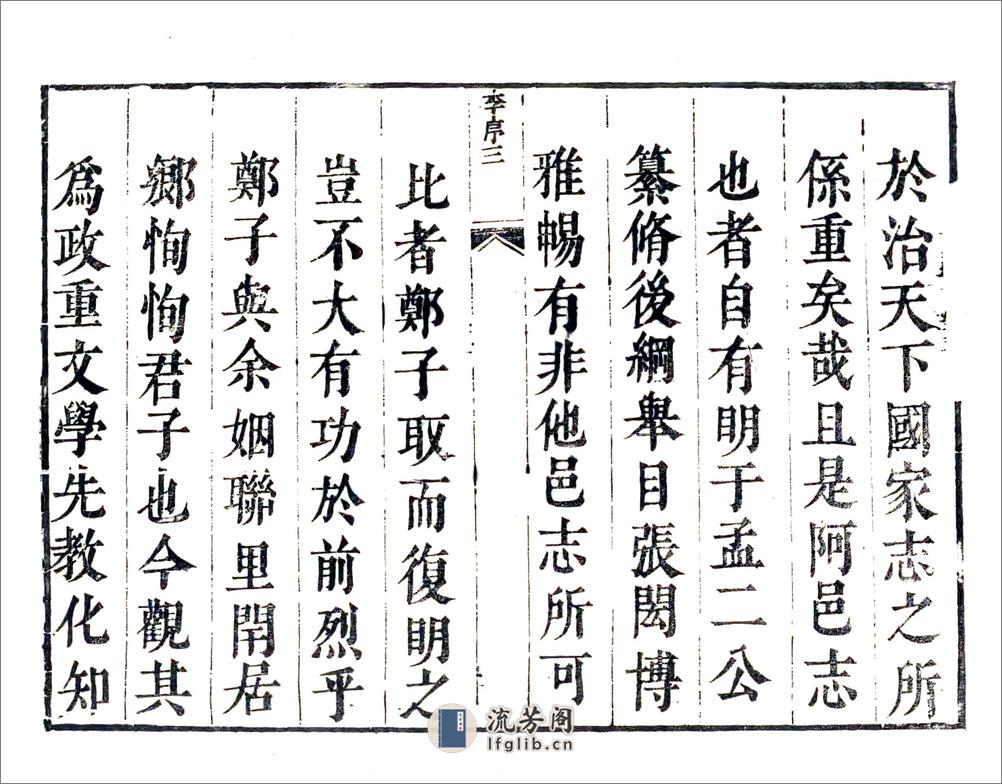 於治天下國家志之所
係重矣哉且是阿邑志
也者自有明于孟二公
纂脩後綱舉目張閎博
雅暢有非他邑志所可
李序三
比者鄭子取而復明之
豈不大有功於前烈乎
鄭子與余姻聯里閈居
鄉恂恂君子也今觀其
爲政重文學先教化知
流芳阁
lfglib.cn